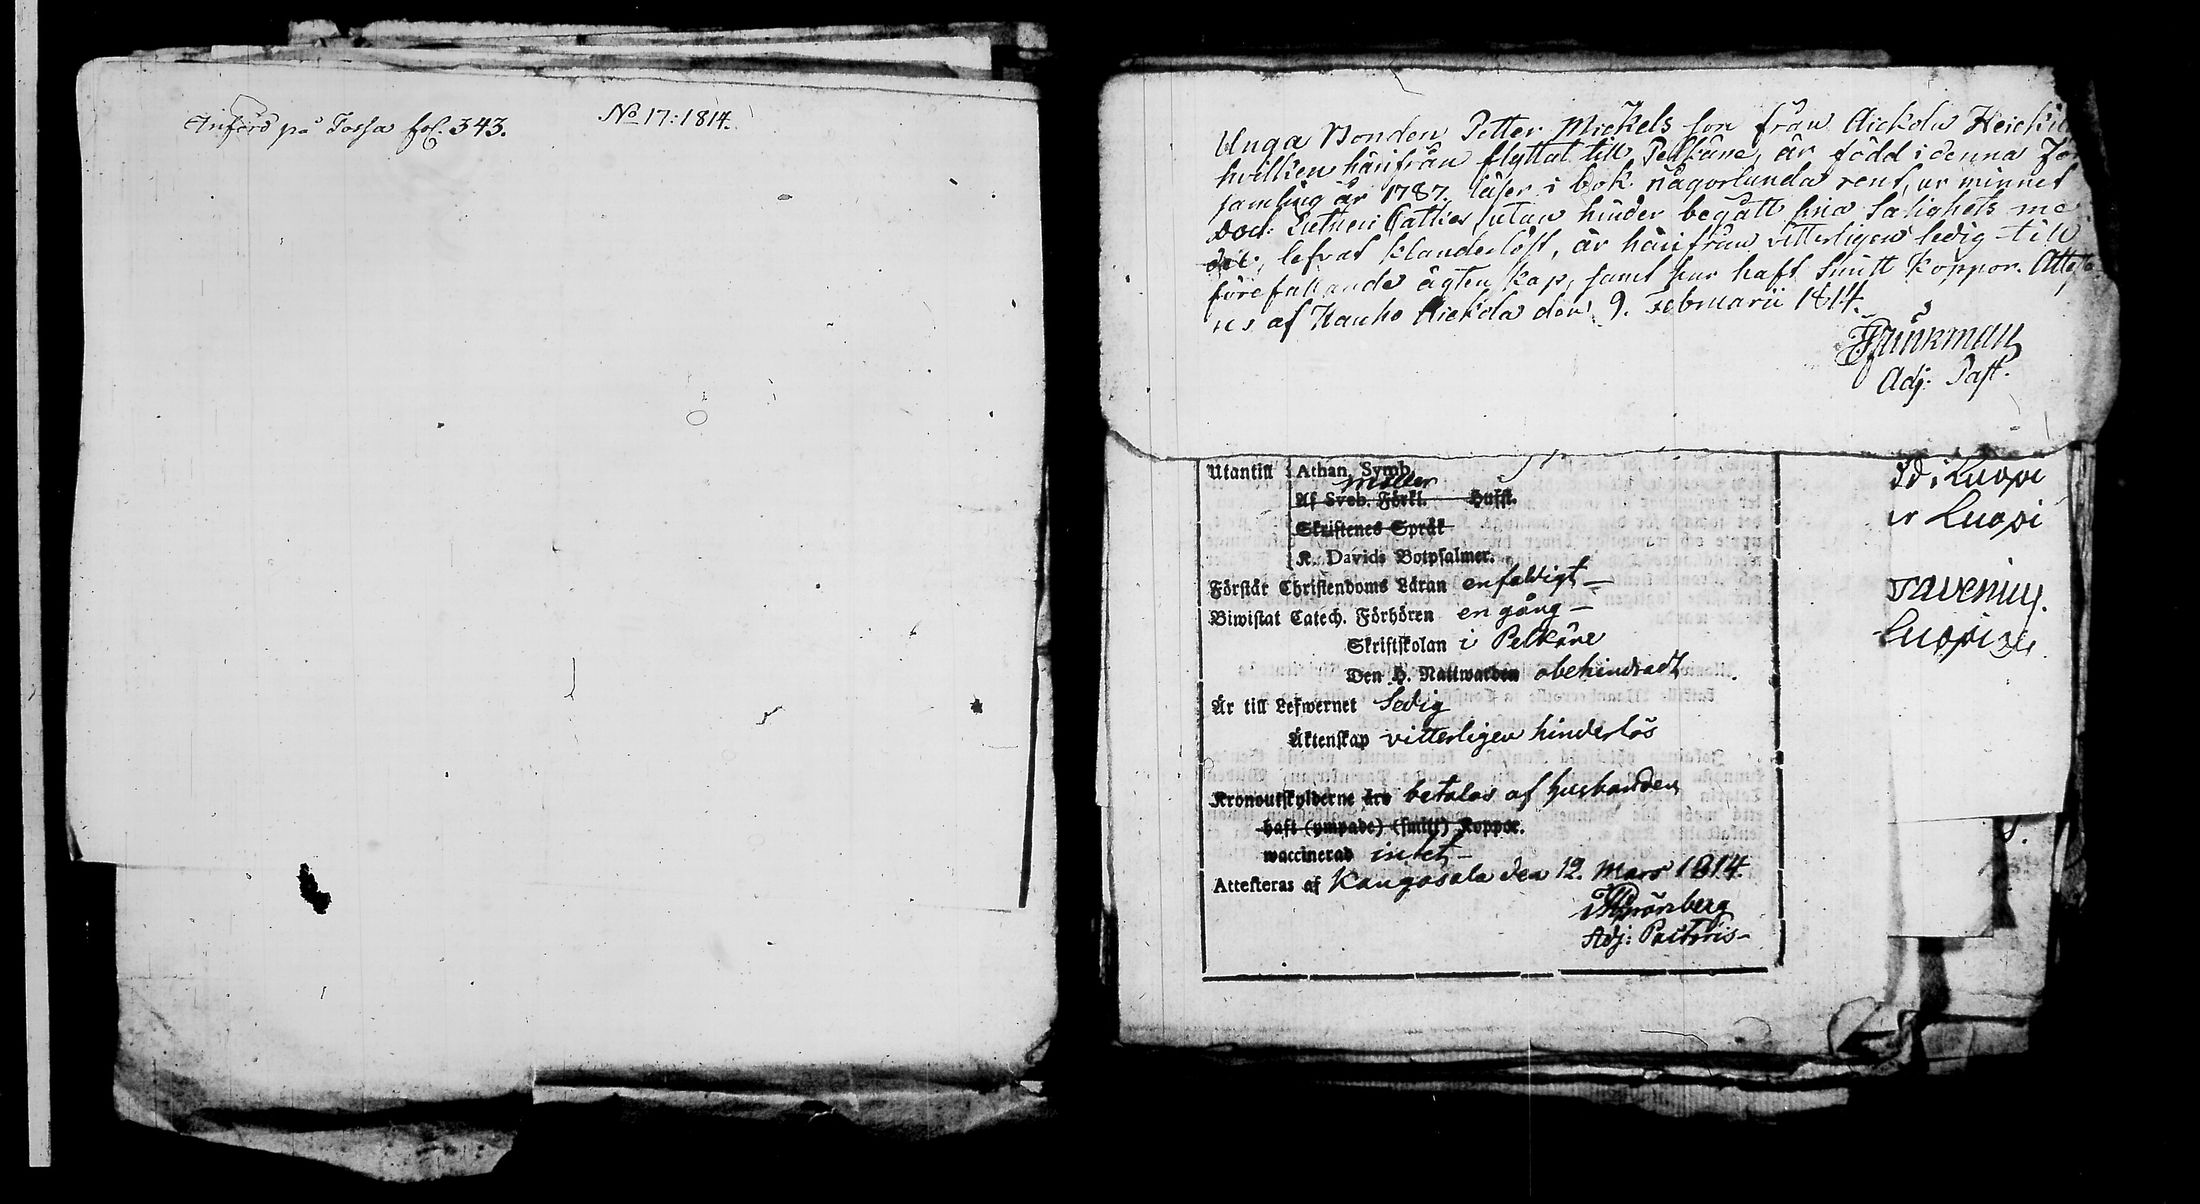 Anförd på Tossa fol. 343.
No 17: 1814.
Unga Bonden Petter Mickels son från Aickola Heickil
hvilken härifrån flyttat till Pelkäne, är född i denna För
samling år 1787. läser i bok någorlunda rent, ur minnet
Doct. Cathes utan hinder begått sina Salighets me
del, lefvat klanderlöst, är härifrån vitterligen ledig till
förefallande ägtenskap, samt har haft Smitt Koppor. Atteste
ras af Hauho Aickola den 9. Februarii 1814.
Adj. Past.
Utantill Athan. Symb.
möller
Af Sveb. Förkl. Hufst.
Skriftenes Språk
K. Davids Botpsalmer.
Förstår Christendoms Läran enfaldigt —
Biwistat Catech. Förhören en gång —
Skriftskolan i Pelkäne
Den H. Nattwarden obehindradt
Är till Lefwernet Ledig
Äktenskap vitterligen hinderlös
Kronoutskylderne äro betalas af husbonden
haft (ympade) (smitt) Koppor.
waccinerad intet —
Attesteras af Kangasala den 12. Mars 1814.
Grönberg
Adj: Pastoris —
dd i Luopi
r Luopi